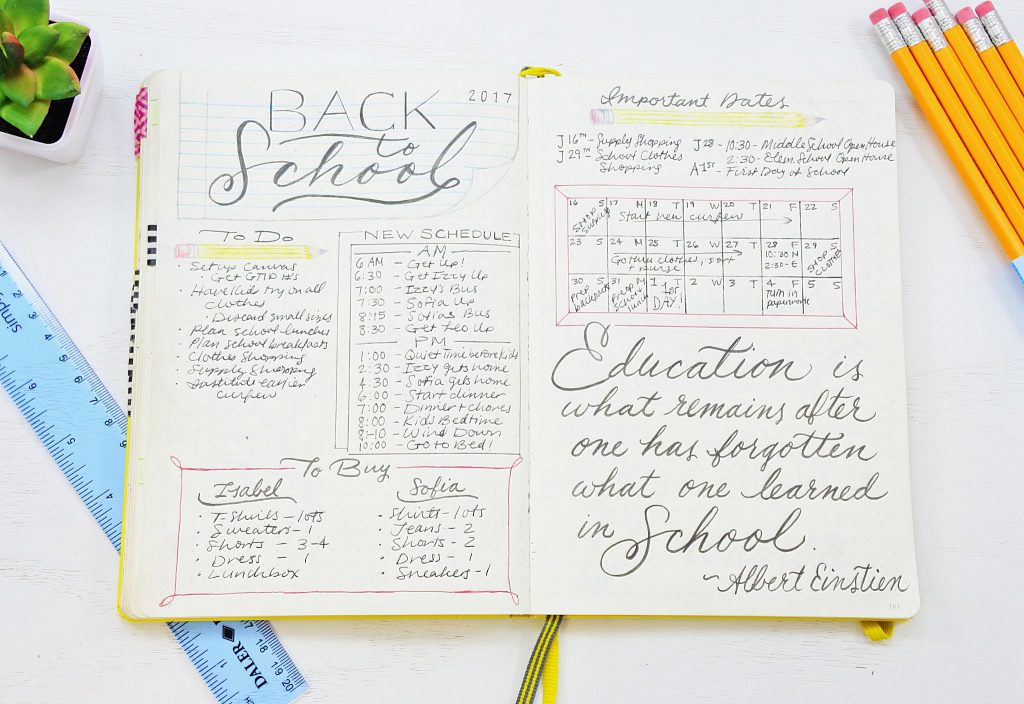 BACK
2017
to
School
To Do
• Setup Canvas
- Get GTID #s
• Have kids try on all
clothes
• Discard small sizes
• Plan school lunches
• Plan school breakfasts
• Clothes Shopping
• Supply Shopping
• Institute earlier
curfew
NEW SCHEDULE
AM
6 AM - Get Up!
6:30 - Get Izzy Up
7:00 - Izzy's Bus
7:30 - Sofia Up
8:15 - Sofia's Bus
8:30 - Get Leo Up
PM
1:00 - Quiet Time before kids
2:30 - Izzy gets home
4:30 - Sofia gets home
6:00 - Start dinner
7:00 - Dinner + chores
8:00 - Kids Bedtime
8-10 - Wind Down
10:00 - Go to Bed!
To Buy
Isabel
• T-Shirts - lots
• Sweaters - 1
• Shorts - 3-4
• Dress - 1
• Lunchbox
Sofia
• Shirts - lots
• Jeans - 2
• Shorts - 2
• Dress - 1
• Sneakers - 1
Important Dates
J 16TH - Supply Shopping
J 29TH - School Clothes
Shopping
J28 - 10:30 - Middle School Open House
2:30 - Elem. School Open House
A 1st - First Day of School
16 S 17 M 18 T 19 W 20 T 21 F 22 S
Shop Supply
Start new curfew
23 S 24 M 25 T 26 W 27 T 28 F 29 S
Go thru clothes, sort
+ purge
10:30 M
2:30 - E
Shop Clothes
30 S 31 M 1 T 2 W 3 T 4 F 5 S
Prep backpacks
Prep school lunch
1st
DAY!
Turn in
paperwork
Education is
what remains after
one has forgotten
what one learned
in School.
~Albert Einstien
161
simply
DALER